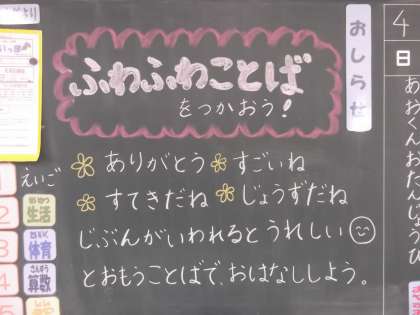 ふわふわことば
をつかおう!
ありがとう すごいね
すてきだね じょうずだね
じぶんがいわれるとうれしい
とおもうことばで、おはなししよう。
おしらせ
4
日
1 えいご
2 せいかつ 生活
3 たいいく 体育
4 さんすう 算数
5